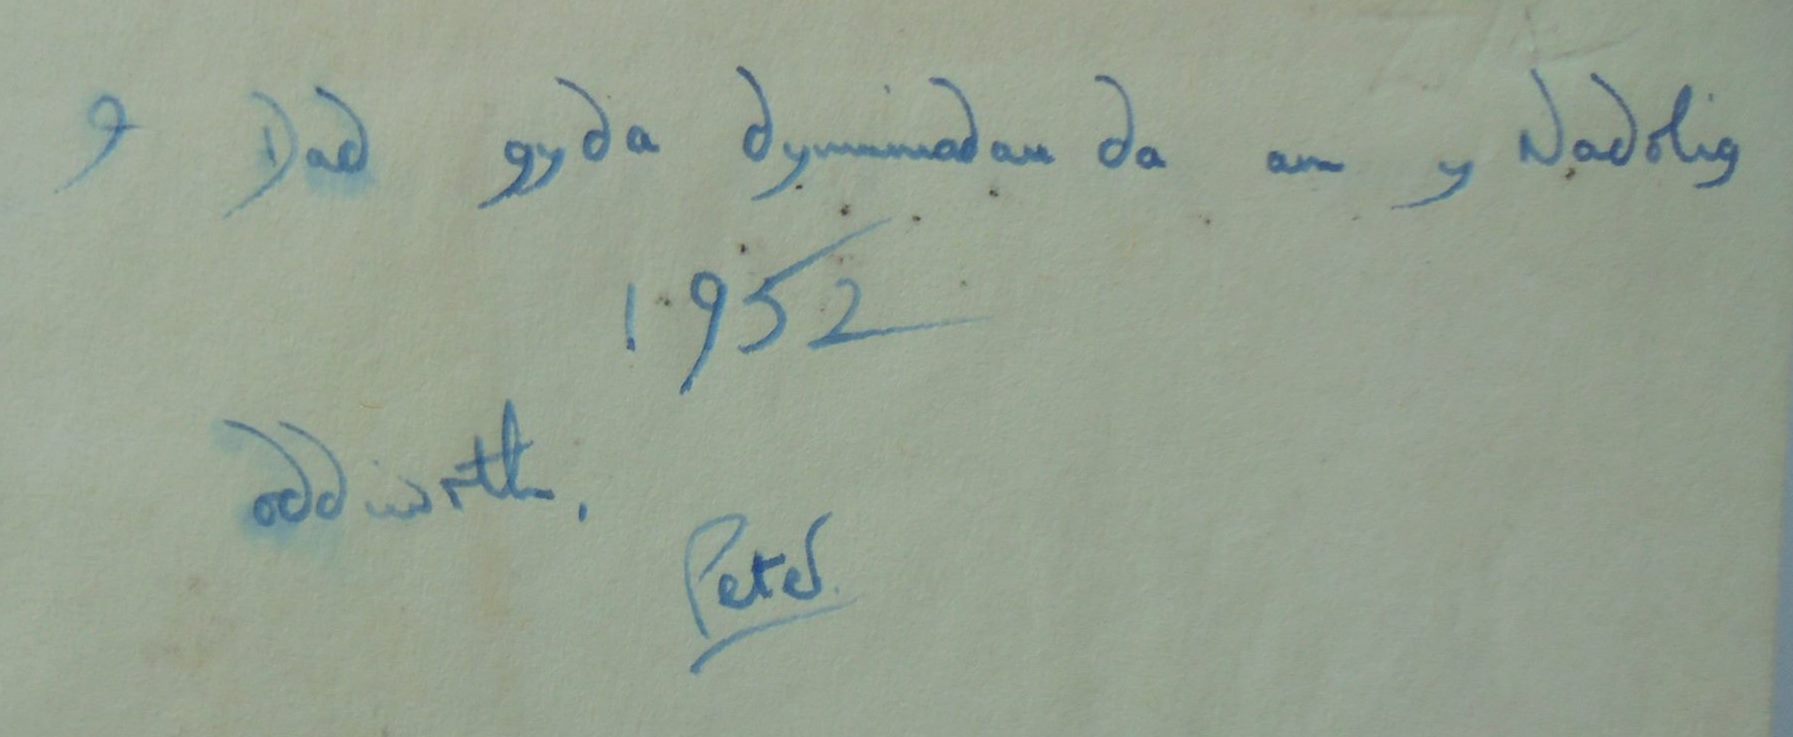 I Dad gyda dymuniadau da am y Nadolig
1952
oddiwrth,
Peter.